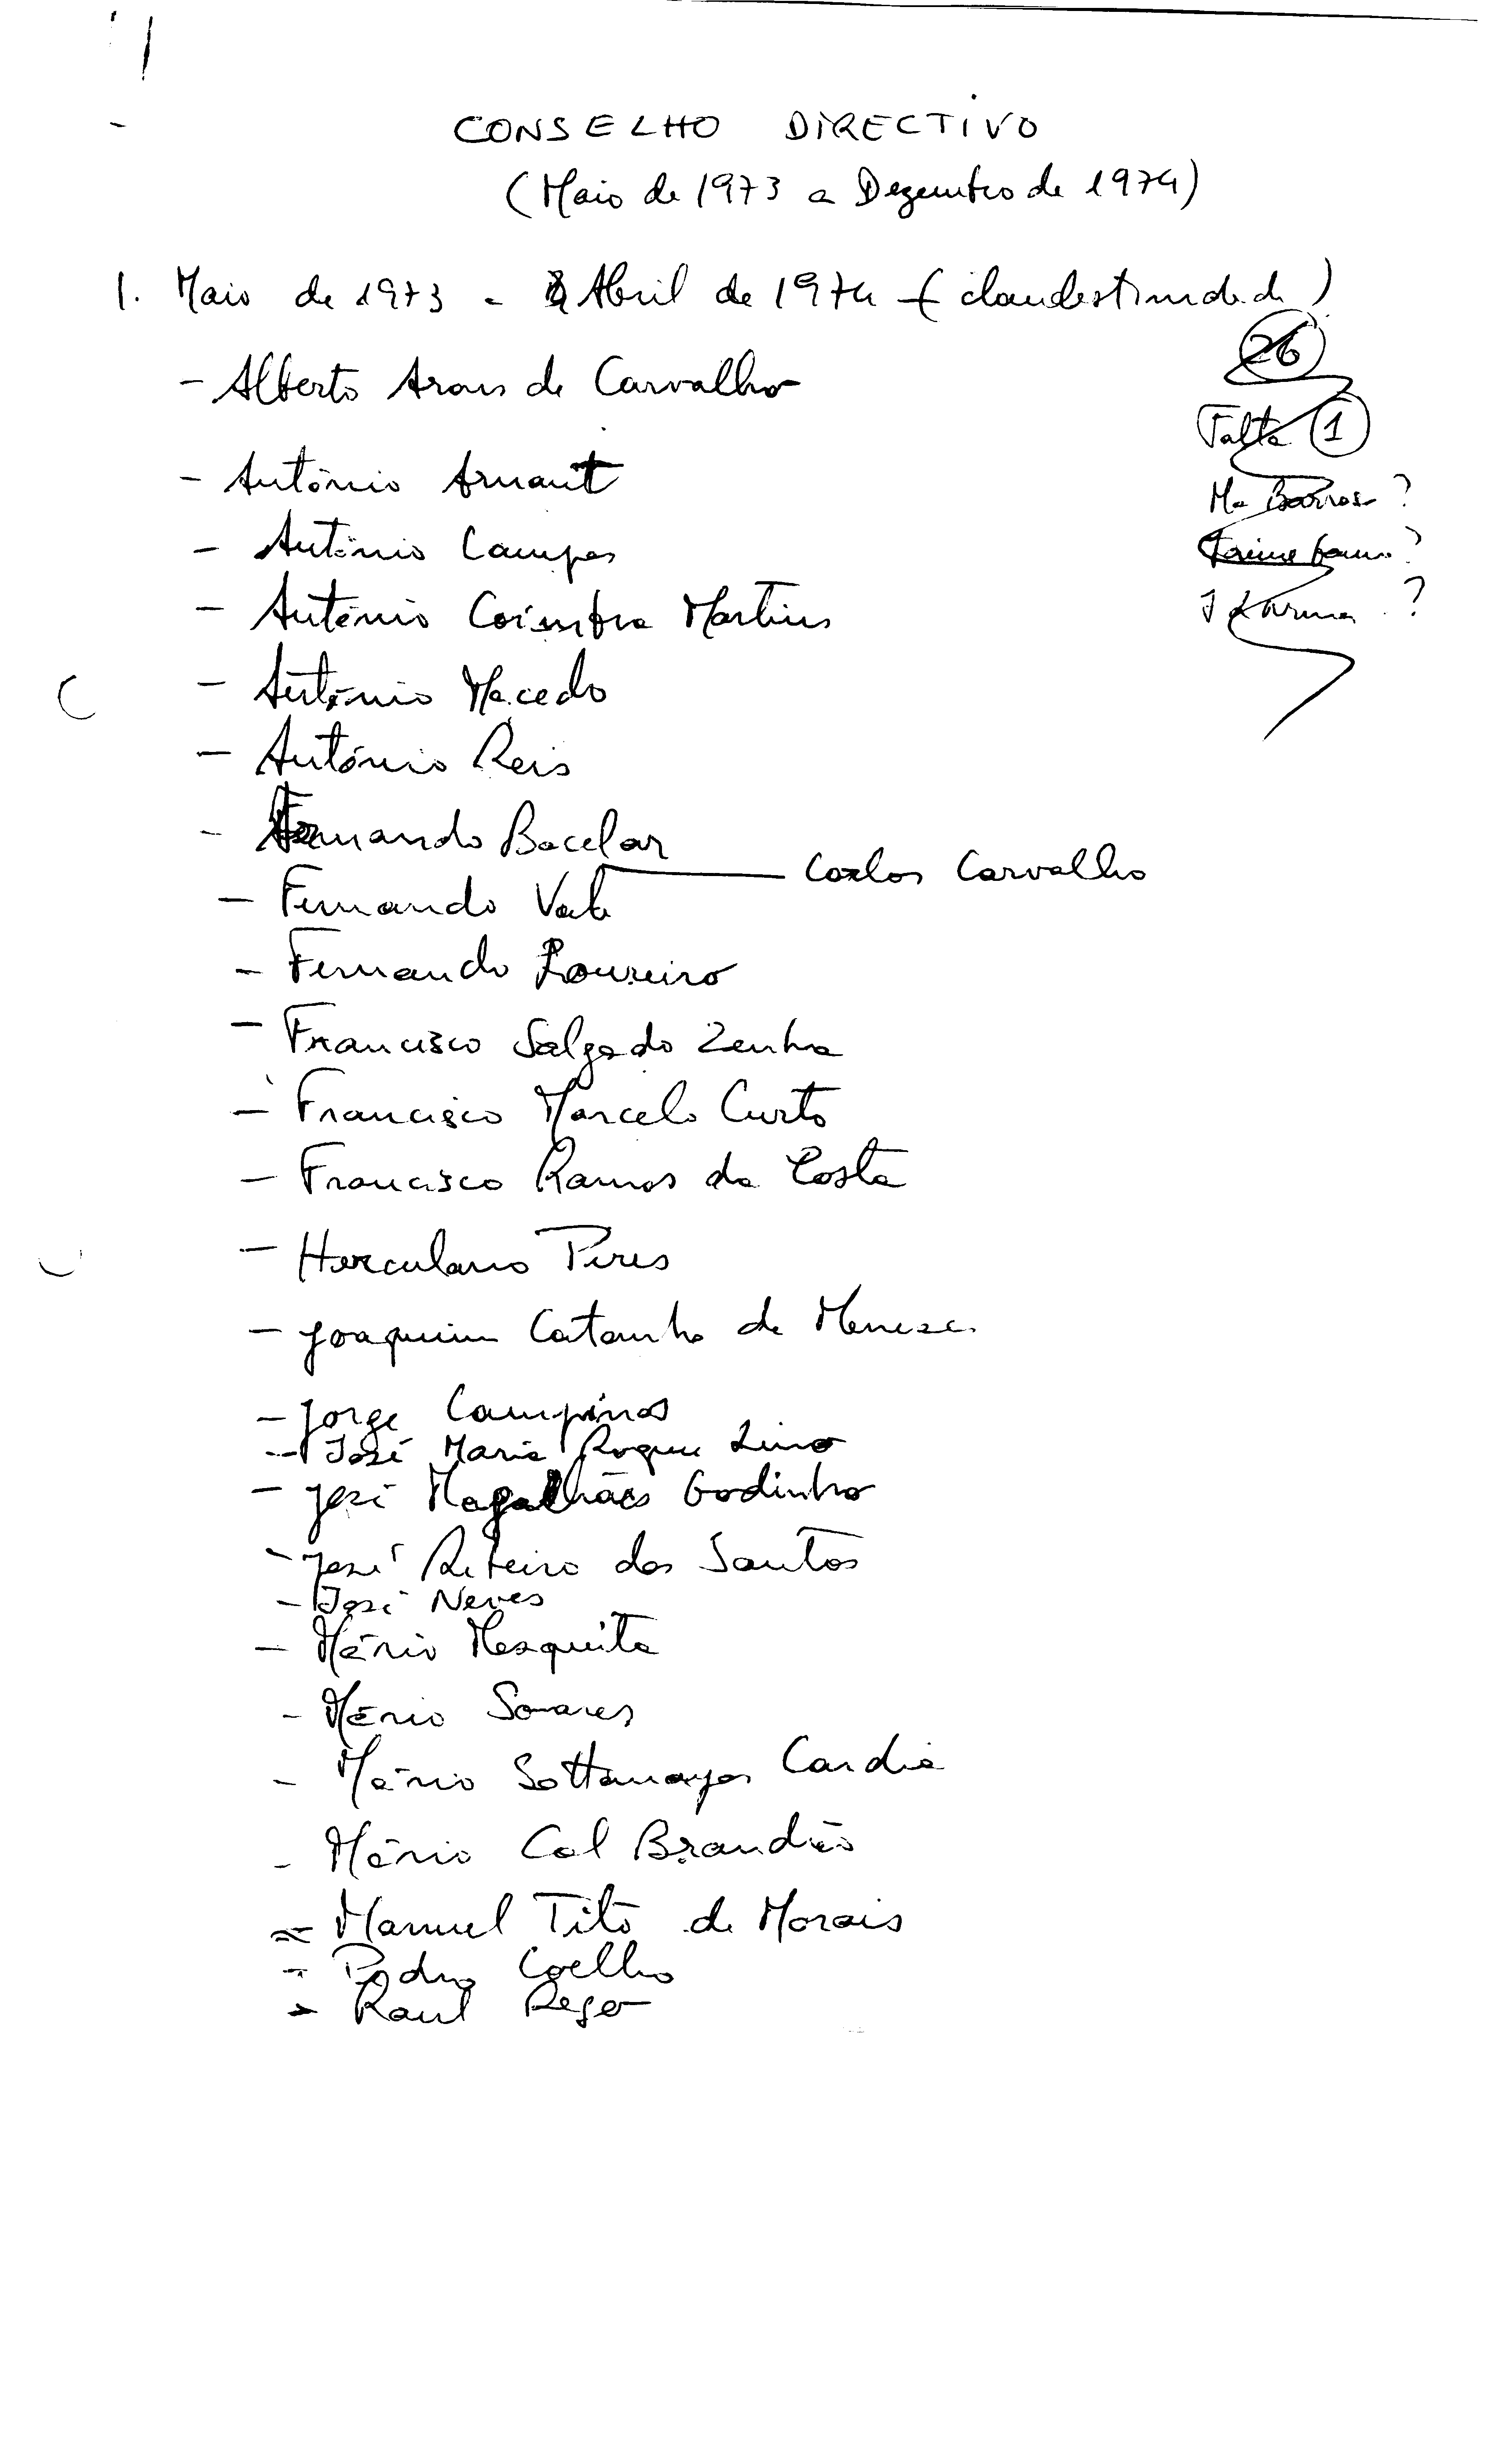 CONSELHO DIRECTIVO
(Maio de 1973 a Dezembro de 1974)
1. Maio de 1973 - Abril de 1974 - (clandestinidade)
26
- Alberto Arons de Carvalho
Falta 1
- António Arnaut
Mª Barroso ?
- António Campos
Jaime Gama ?
- António Coimbra Martins
?
- António Macedo
- António Reis
- Fernando Bacelar
Carlos Carvalho
- Fernando Vale
- Fernando Loureiro
- Francisco Salgado Zenha
- Francisco Marcelo Curto
- Francisco Ramos da Costa
- Herculano Pires
- Joaquim Catanho de Meneses
- Jorge Campinos
- José Maria Roque Lino
- José Magalhães Godinho
- José Ribeiro dos Santos
- José Neves
- Mário Mesquita
- Mário Soares
- Mário Sottomayor Cardia
- Mário Cal Brandão
- Manuel Tito de Morais
- Pedro Coelho
- Raul Rego